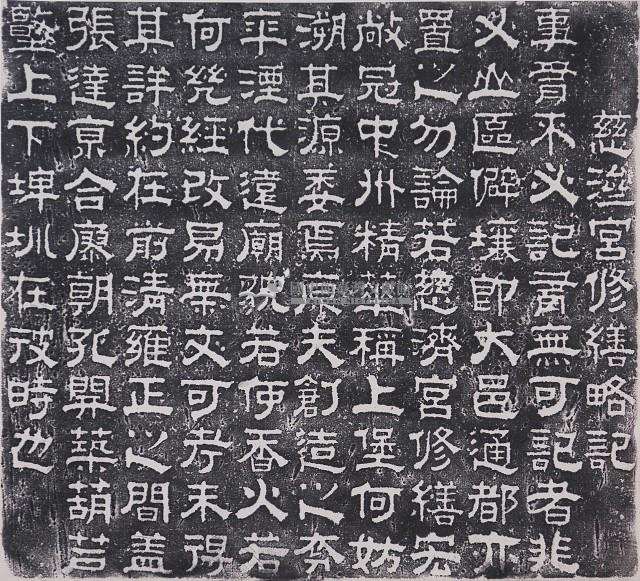 慈濟宮修繕略記
事有不必記有無可記者非
又山區僻壤即大邑通都亦
置之勿論若慈濟宮修繕宏
敞冠中州精華稱上堡何妨
溯其源委焉原夫創造之
年湮代遠廟貌若何香火若
何幾經改易無文可考未得
其詳約在前清雍正之間蓋
張達京合康朝孔開築葫芦
上下埤圳在彼時也